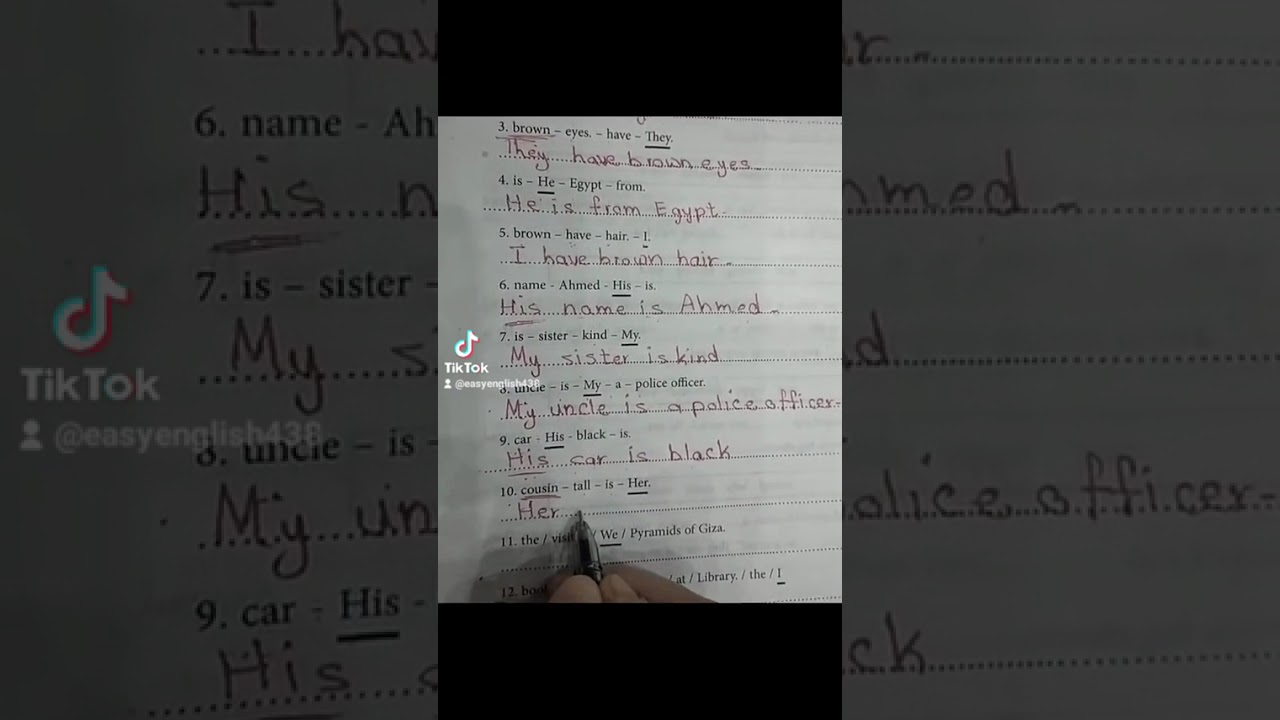 3. brown – eyes. – have – They.
They have brown eyes
4. is – He – Egypt – from.
He is from Egypt.
5. brown – have – hair. – I.
I have brown hair.
6. name - Ahmed - His – is.
His name is Ahmed.
7. is – sister – kind – My.
My sister is kind
8. uncle – is – My – a – police officer.
My uncle is a police officer.
9. car - His - black – is.
His car is black
10. cousin – tall – is – Her.
Her
11. the / / We / Pyramids of Giza.
12. / at / Library. / the / I
TikTok
@easyenglish438